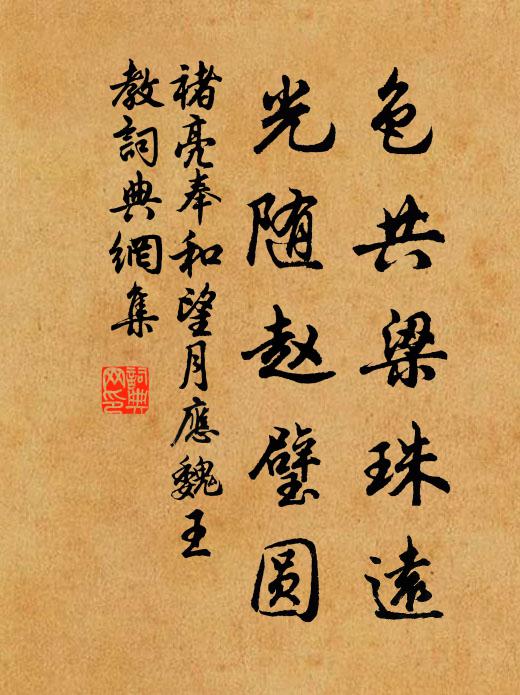 色共梁珠遠
光随赵璧圆
褚亮奉和望月應魏王
教詞典網集
詞典网印